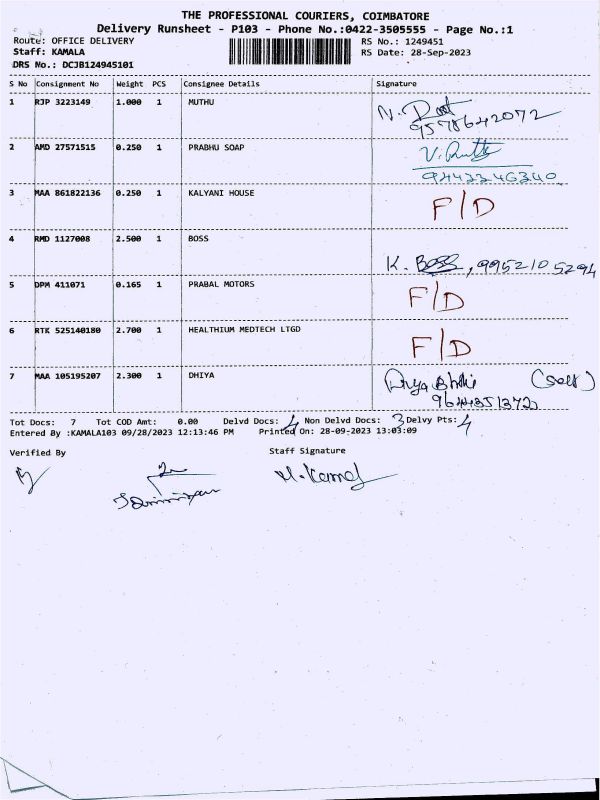 THE PROFESSIONAL COURIERS, COIMBATORE
Delivery Runsheet - P103 - Phone No.:0422-3505555 - Page No.:1
Route: OFFICE DELIVERY RS No.: 1249451
Staff: KAMALA RS Date: 28-Sep-2023
DRS No.: DCJB124945101
S No Consignment No Weight PCS Consignee Details Signature
1 RJP 3223149 1.000 1 MUTHU
9578642072
2 AMD 27571515 0.250 1 PRABHU SOAP
9443346340
3 MAA 861822136 0.250 1 KALYANI HOUSE F/D
4 RMD 1127008 2.500 1 BOSS
K. BOSS, 9952105294
5 DPM 411071 0.165 1 PRABAL MOTORS F/D
6 RTK 525140180 2.700 1 HEALTHIUM MEDTECH LTGD F/D
7 MAA 105195207 2.300 1 DHIYA (Self)
Tot Docs: 7 Tot COD Amt: 0.00 Delvd Docs: 4 Non Delvd Docs: 3 Delvy Pts: 4
Entered By :KAMALA103 09/28/2023 12:13:46 PM Printed On: 28-09-2023 13:03:09
Verified By Staff Signature
M. Kamal